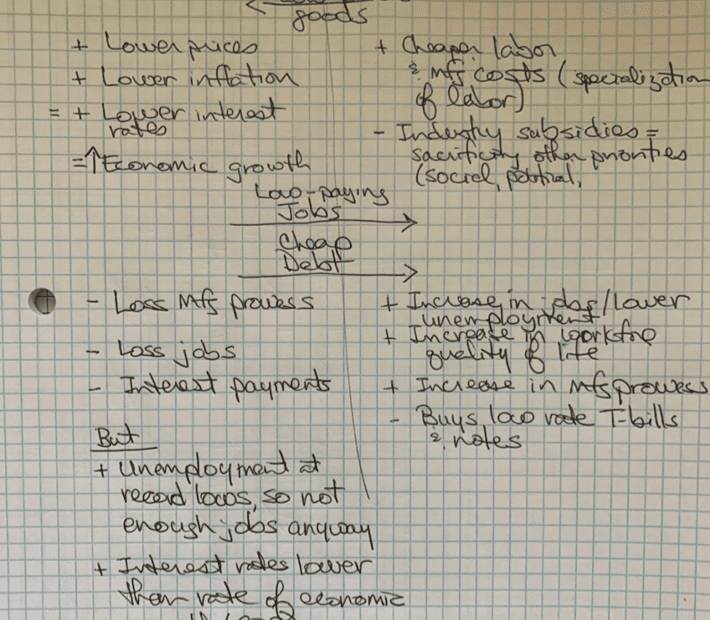 goods
+ Lower prices
+ Lower inflation
= + Lower interest
rates
=↑Economic growth
+ Cheaper labor
& mfg costs (specialization
of labor)
- Industry subsidies =
sacrificing other priorities
(social, political,
Low-paying
Jobs
Cheap
Debt
- Loss mfg prowess
- Loss jobs
- Interest payments
But
+ Unemployment at
record lows, so not
enough jobs anyway
+ Interest rates lower
than rate of economic
+ Increase in jobs/lower
unemployment
+ Increase in workforce
quality of life
+ Increase in mfg prowess
- Buys low rate T-bills
& notes